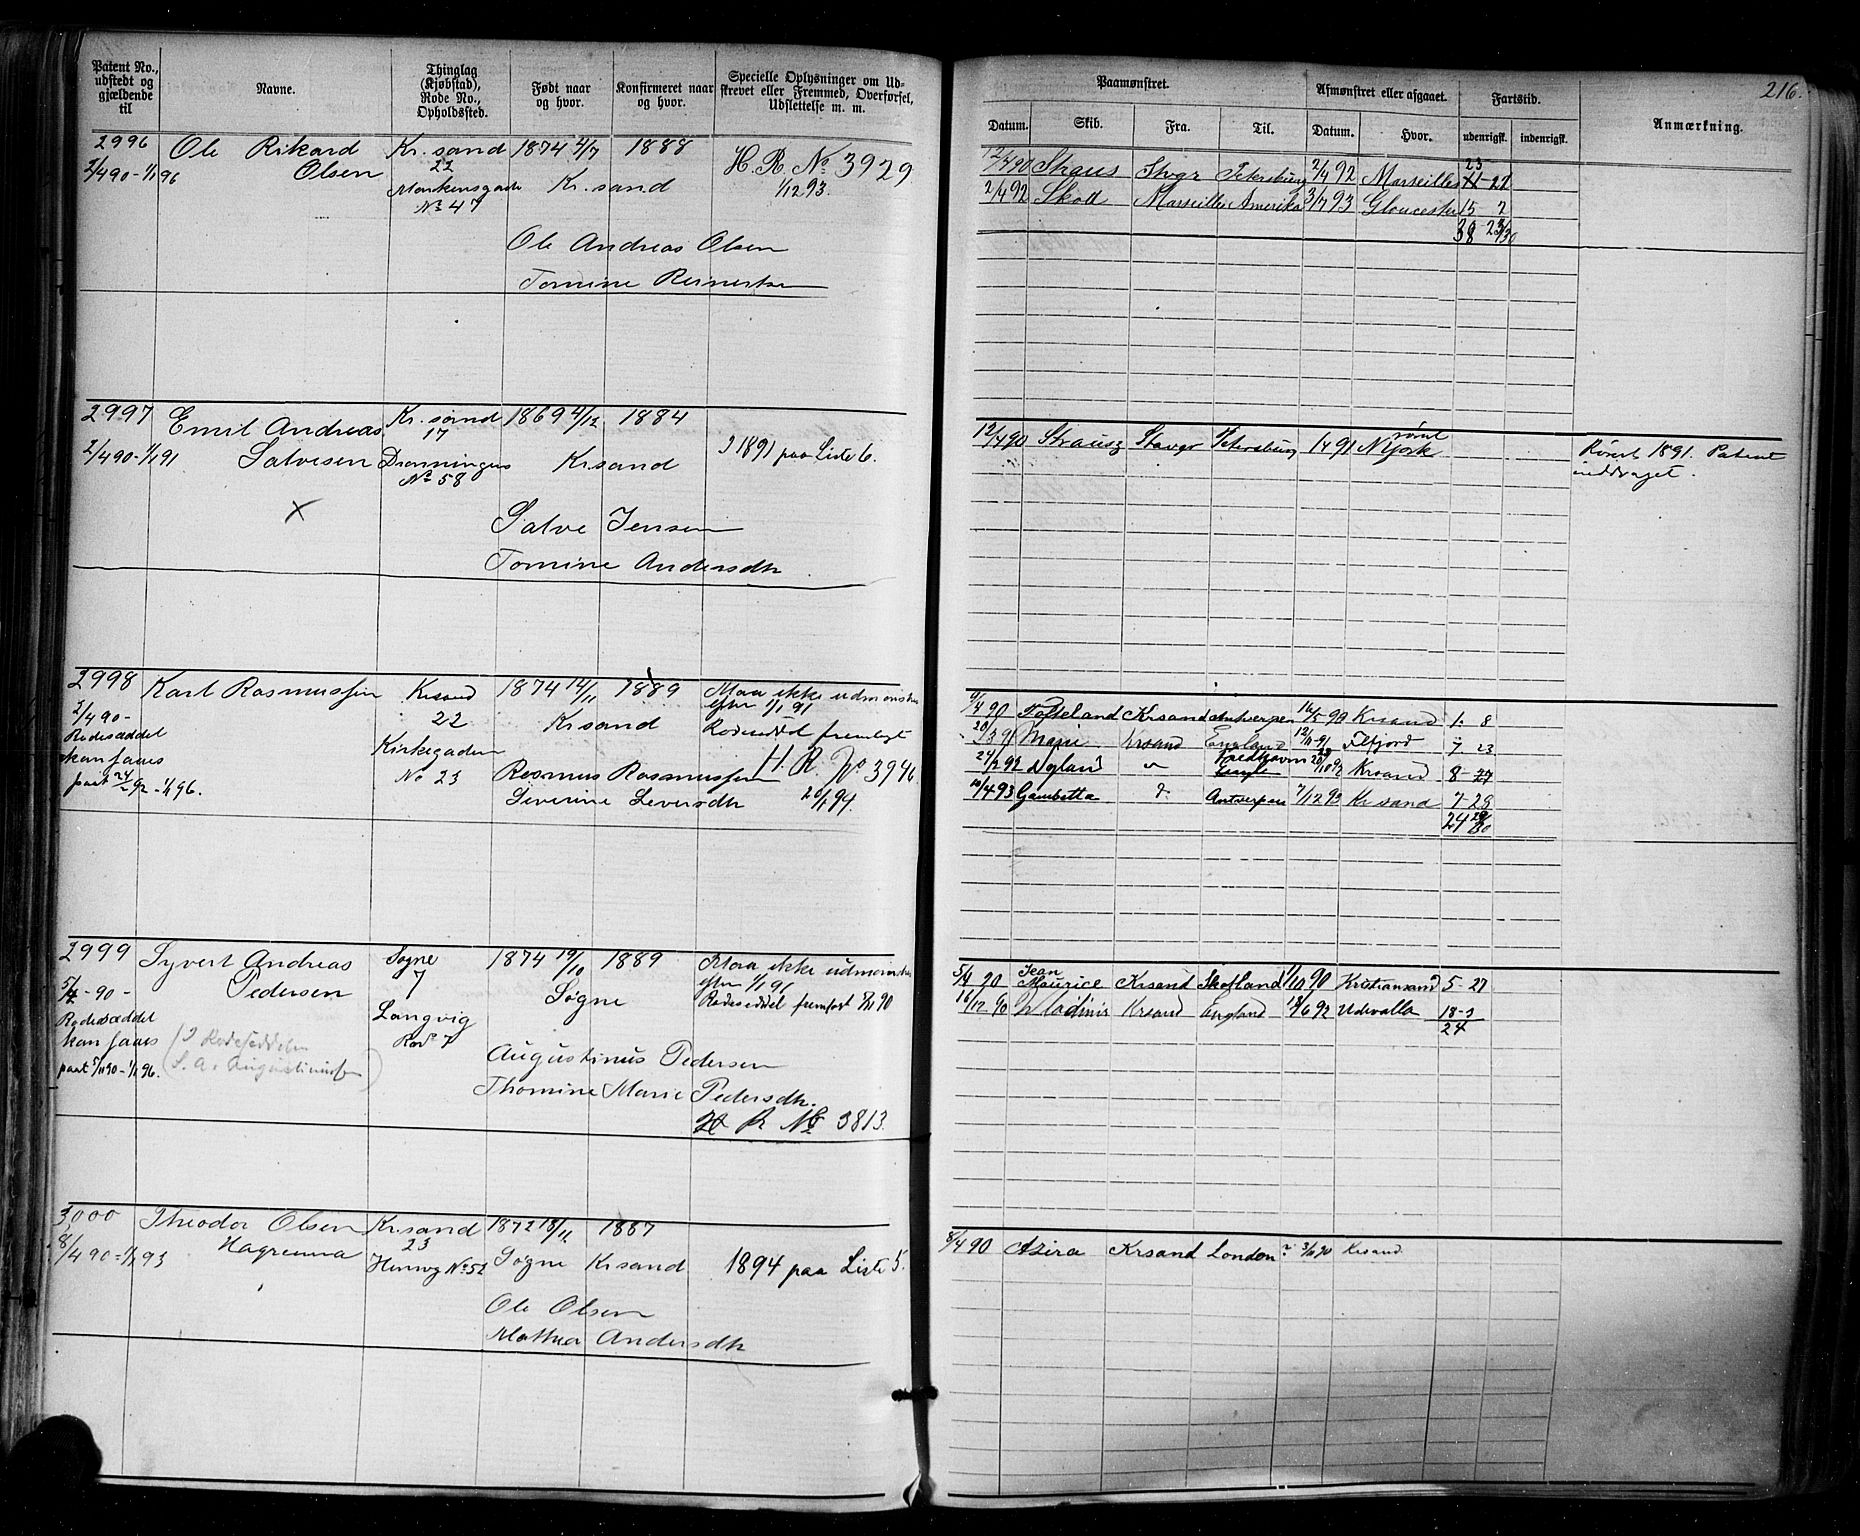 216.
Patent No., udstedt og gjældende til
Navne.
Thinglag (Kjøbstad), Rode No., Opholdssted.
Født naar og hvor.
Konfirmeret naar og hvor.
Specielle Oplysninger om Udskrevet eller Fremmed, Overførsel, Udslettelse m. m.
Paamønstret.
Afmønstret eller afgaaet.
Fartstid.
Anmærkning.
Datum. Skib. Fra. Til. Datum. Hvor. udenrigsk. indenrigsk.
2996 Ole Rikard Kr. sand 1874 4/7 1888 H. R. No 3929
2/4 90 - 1/1 96 Olsen 22 Kr. sand 1/12 93.
Markensgade
No 47
Ole Andreas Olsen
Tomine Reinertsen
12/4 90 Straus Stvgr Petersburg 2/4 92 Marseilles 23 - 27
2/4 92 Skod Marseilles Amerika 3/7 93 Gloucester 15 2
2997 Emil Andreas Kr. sand 1869 4/12 1884
2/4 90 - 1/1 91 Salvesen 17 Krsand 1891 paa Liste 6.
Dronningens
No 58
Salve Jensen
Tomine Andersdtr
12/4 90 Strausz Stavgr Petersburg 14 91 N york rømt Rømt 1891. Patent
inddraget.
2998 Karl Rasmussen Krsand 1874 14/11 1889 Maa ikke udmønstres
2/4 90 - 22 Krsand efter 1/1 91
Rodeseddel Kirkegaden Rodeseddel fremlagt
kan faaes No 23 H. R. No 3946
paat 24/ 92 - 1/1 96. 20/1 94.
Rasmus Rasmussen
Severine Seversdtr
9/4 90 Tofteland Krsand Antwerpen 16/5 90 Krsand 1. 8
20/3 91 Marie Krsand England 12/11 91 Flfjord 7. 23
24/2 92 Dyland " Fredrhavn 20/10 92 Krsand 8 - 27
10/4 93 Gambetta d. Antverpen 7/12 93 Kr sand 7 - 28
2999 Syvert Andreas Søgne 1874 19/10 1889 Maa ikke udmønstres
5/4 - 90 - Pedersen 7 Søgne efter 1/1 91
Rodeseddel Langvig Rodeseddel fremført 8/11 90
kan faaes Rode 7
paat 5/11 90 - 1/1 96.
(I Rodeseddelen
S. A. Augustinussen)
Augustinus Pedersen
Thomine Marie Pedersdtr.
H R No 3813.
5/4 90 Jean Maurice Krsand Skotland 1/10 90 Kristiansand 5 - 27
16/12 90 Wladimir Krsand England 18/6 92 Udevalla 18 - 3
24
3000 Theodor Olsen Krsand 1872 18/11 1887
8/4 90 - 1/1 93 Hagrenna 23 Søgne Krsand 1894 paa Liste 5.
No 52
Ole Olsen
Mathea Andersdtr
8/4 90 Azira Krsand London ? 3/11 90 Krsand